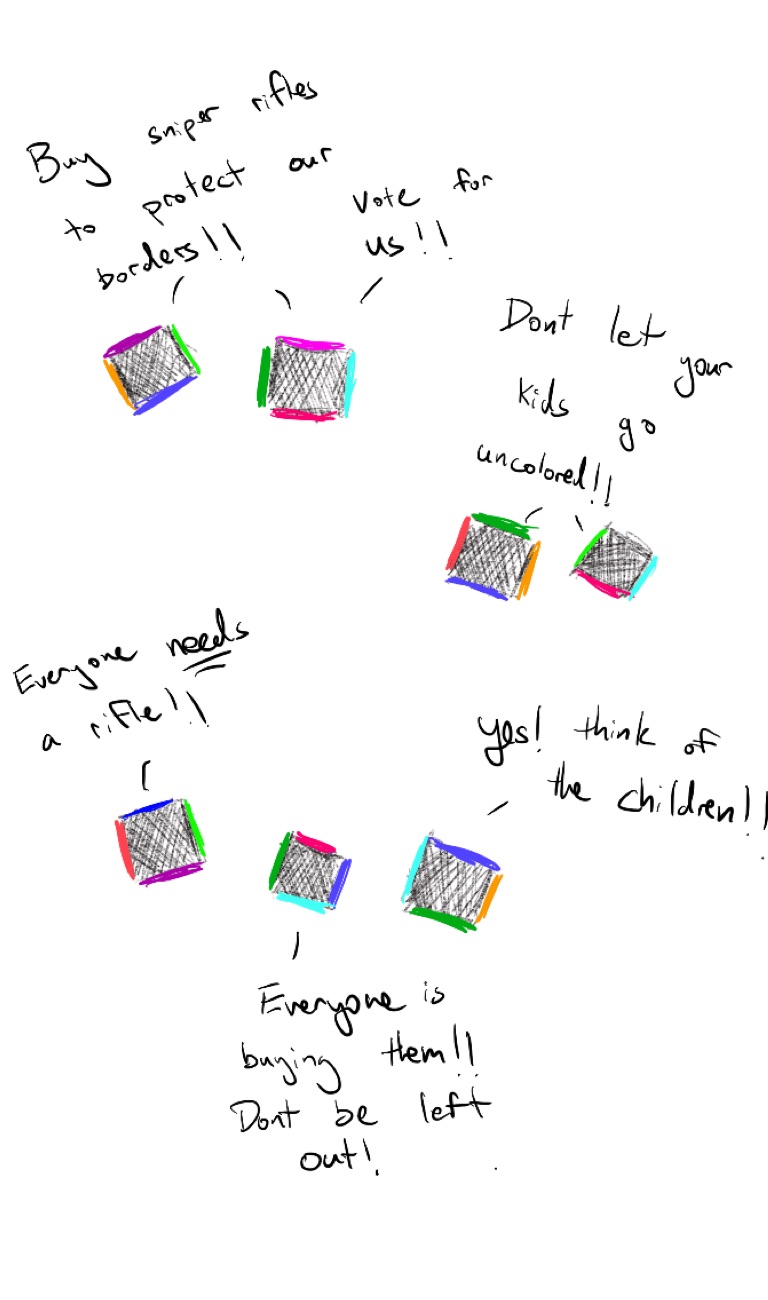 Buy sniper rifles
to protect our
borders!!
Vote for
us!!
Dont let your
kids go
uncolored!!
Everyone needs
a rifle!!
yes! think of
the children!!
Everyone is
buying them!!
Dont be left
out!